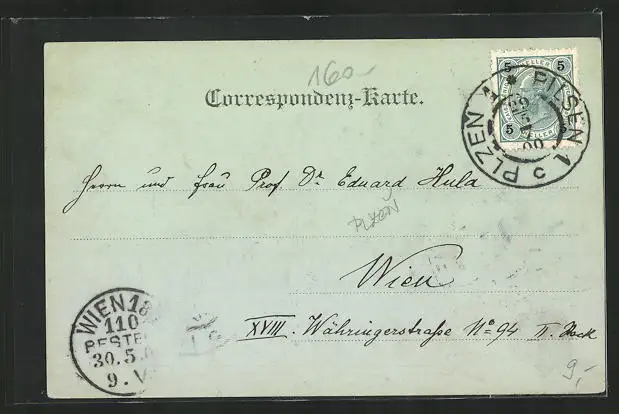 160.-
Correspondenz-Karte.
5 HELLER 5
5 HELLER 5
PLZEN 1 * PILSEN 1
29
5
00
Herrn und Frau Prof. Dr. Eduard Hula
PLZEN
Wien
XVIII. Währingerstraße No 94 II. Stock
WIEN 18
110
BESTE
30.5.0
9. V
9,-